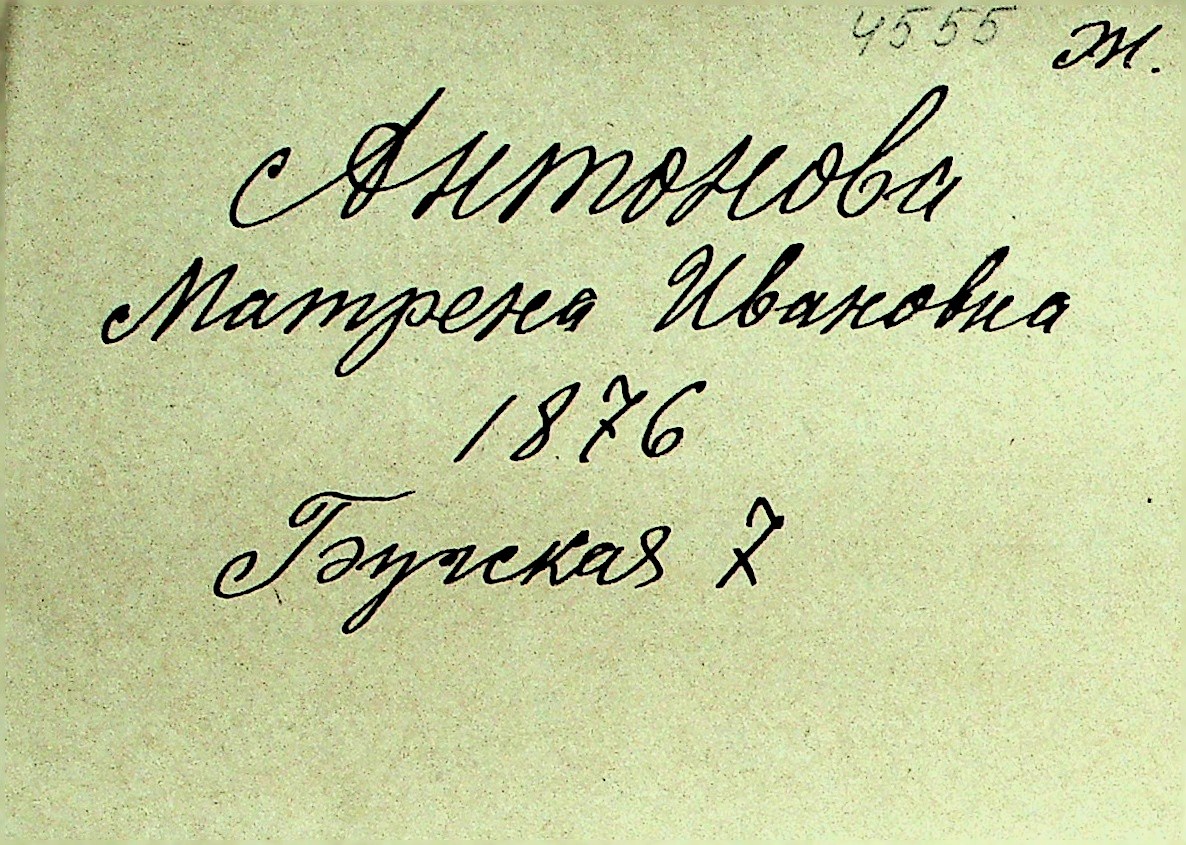 4555 ж.
Антонова
Матрена Ивановна
1876
Бужская 7